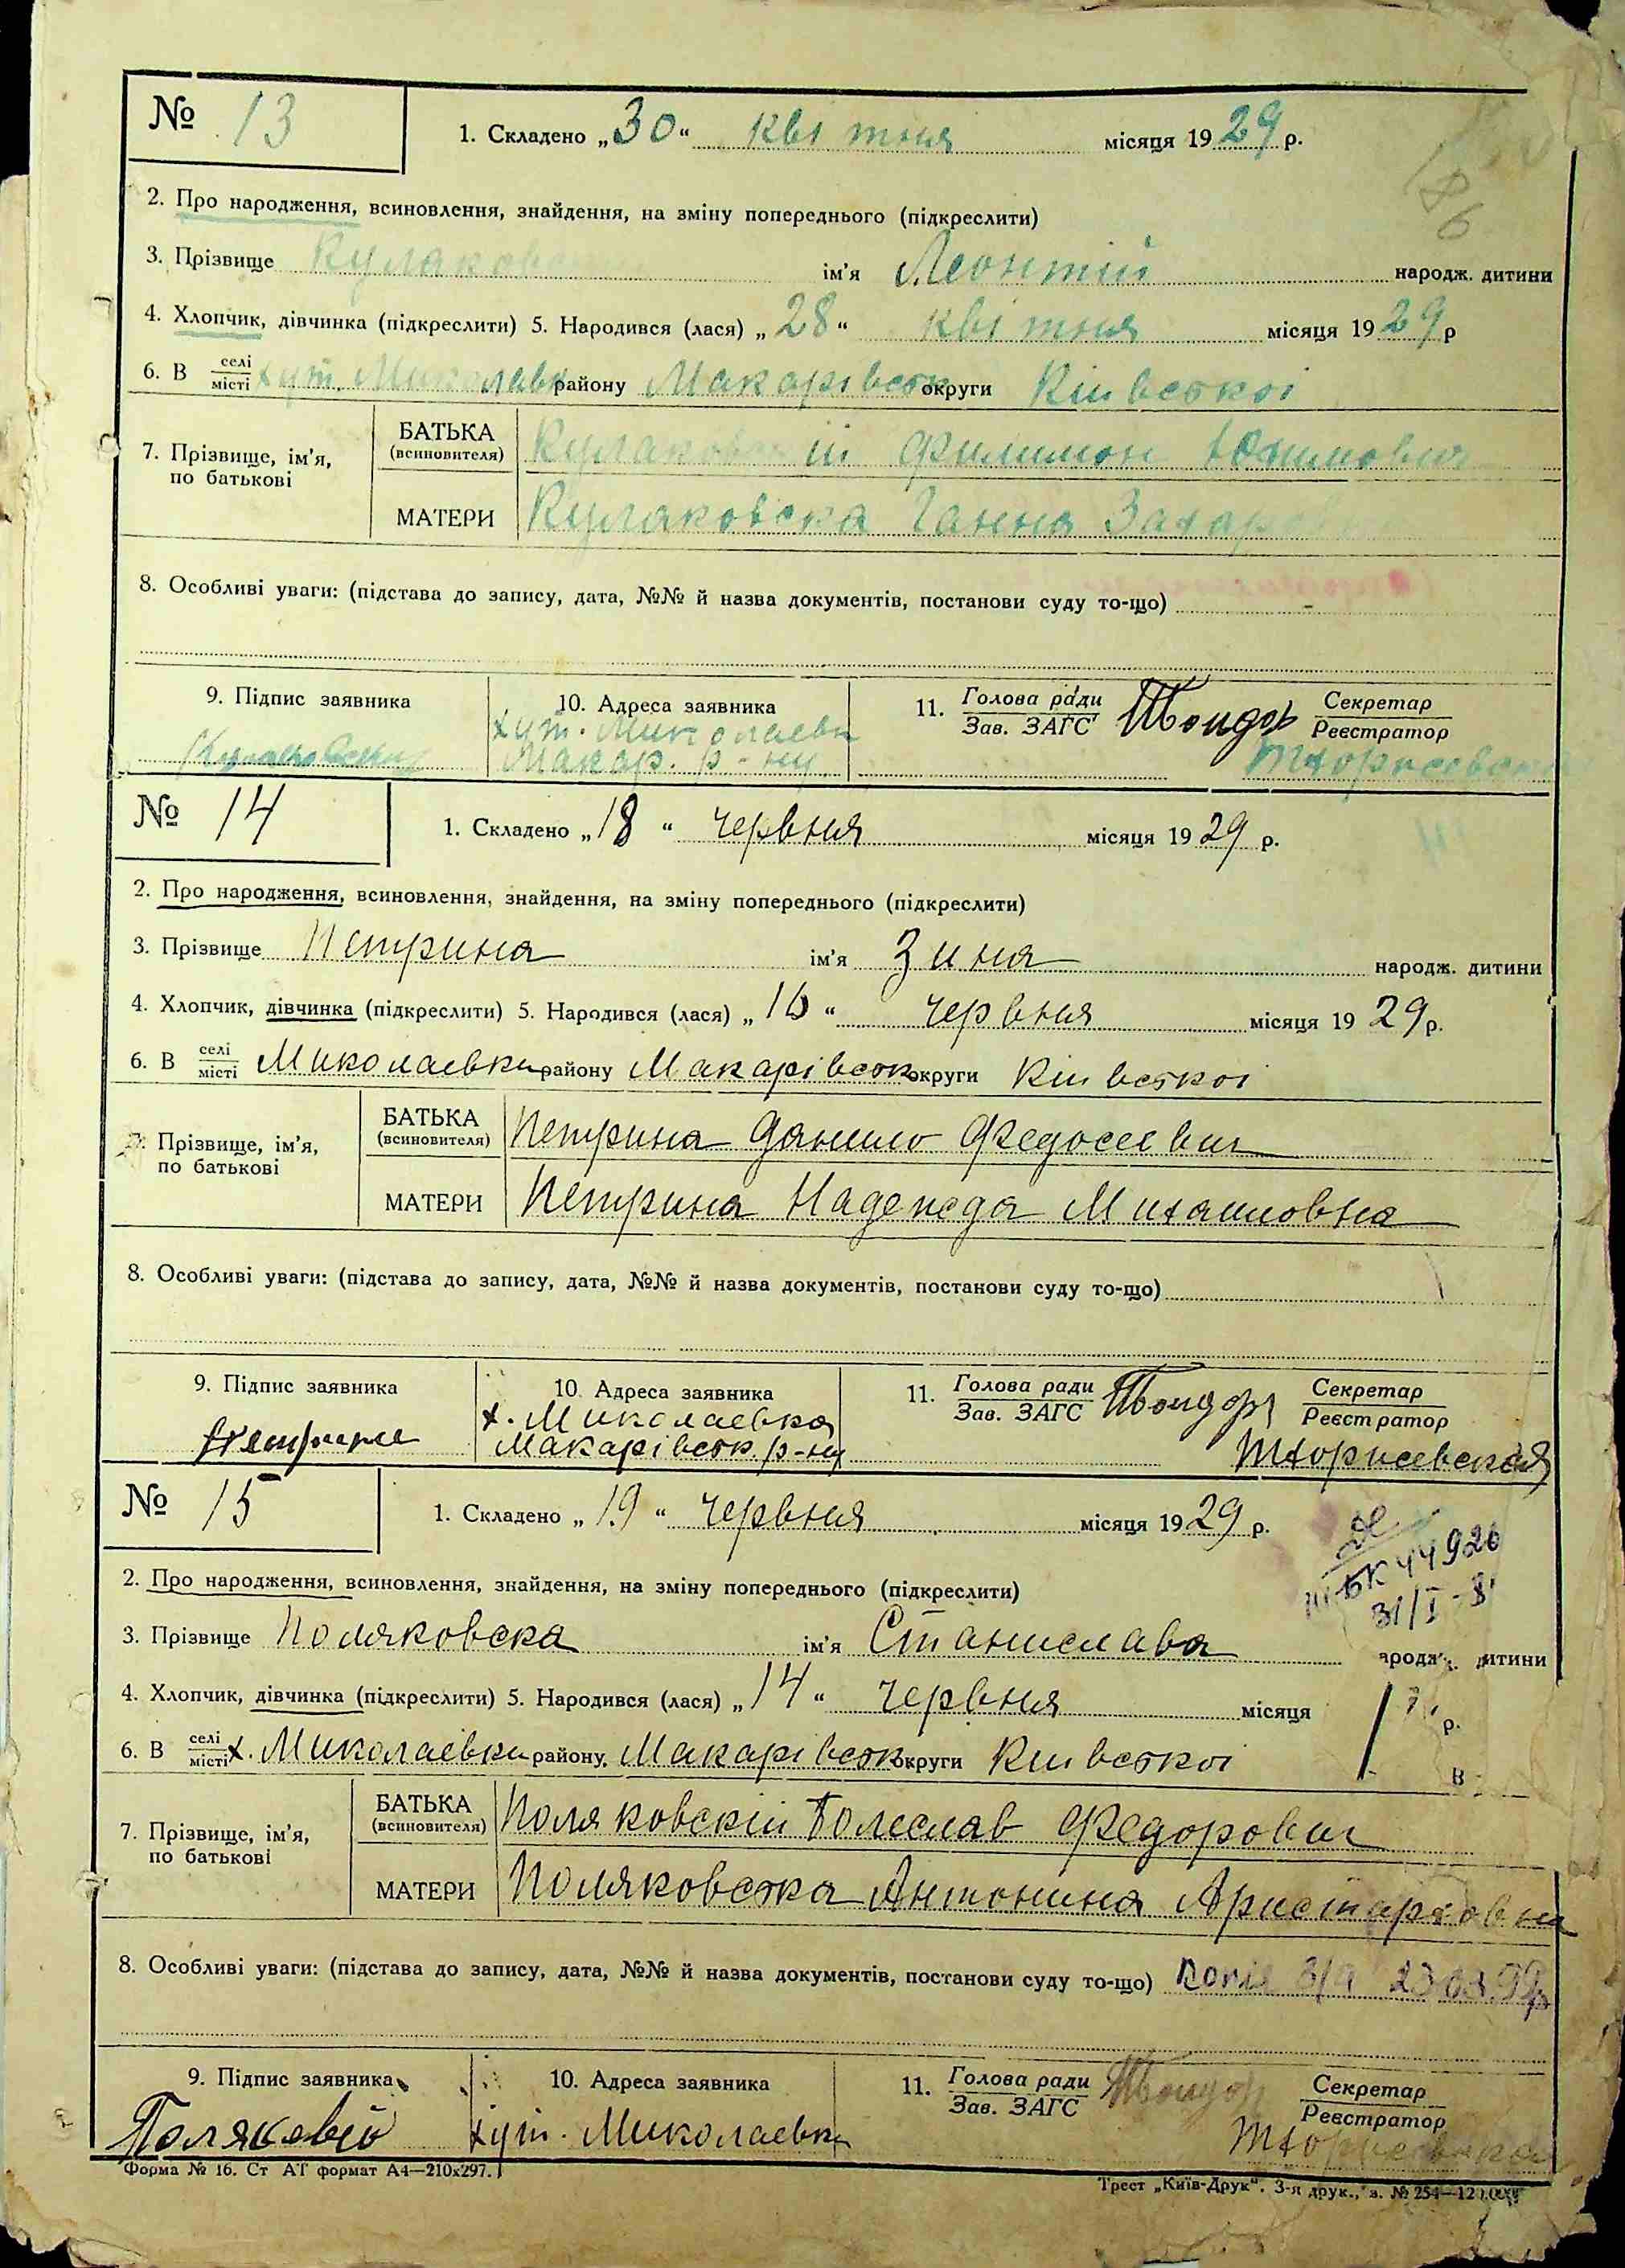 № 13
1. Складено „30“ квітня місяця 1929 р.
2. Про народження, всиновлення, знайдення, на зміну попереднього (підкреслити)
3. Прізвище Кулаковс ім'я Леонтій народж. дитини
4. Хлопчик, дівчинка (підкреслити) 5. Народився (лася) „28“ квітня місяця 1929 р
6. В селі/місті хут. Миколаевк району Макарівськ округи Киівської
7. Прізвище, ім'я, по батькові
БАТЬКА (всиновителя) Кулаковский Филимон
МАТЕРИ Кулаковска Ганна Захаров
8. Особливі уваги: (підстава до запису, дата, №№ й назва документів, постанови суду то-що) -
9. Підпис заявника
10. Адреса заявника
11. Голова ради/Зав. ЗАГС
Секретар/Реєстратор
хут. Миколаевк
Макар. р-ну
№ 14
1. Складено „18“ червня місяця 1929 р.
2. Про народження, всиновлення, знайдення, на зміну попереднього (підкреслити)
3. Прізвище Петрина ім'я Зина народж. дитини
4. Хлопчик, дівчинка (підкреслити) 5. Народився (лася) „16“ червня місяця 1929 р.
6. В селі/місті Миколаевки району Макарівськ округи Киівської
7. Прізвище, ім'я, по батькові
БАТЬКА (всиновителя) Петрина Данило Федосеевич
МАТЕРИ Петрина Надежда Михаиловна
8. Особливі уваги: (підстава до запису, дата, №№ й назва документів, постанови суду то-що)
9. Підпис заявника
10. Адреса заявника
11. Голова ради/Зав. ЗАГС
Секретар/Реєстратор
х. Миколаевка
Макарівськ. р-ну
№ 15
1. Складено „19“ червня місяця 1929 р.
44920
31/I-
2. Про народження, всиновлення, знайдення, на зміну попереднього (підкреслити)
3. Прізвище Поляковска ім'я Станислава народж. дитини
4. Хлопчик, дівчинка (підкреслити) 5. Народився (лася) „14“ червня місяця р.
6. В селі/місті х. Миколаевки району Макарівськ округи Киівської
7. Прізвище, ім'я, по батькові
БАТЬКА (всиновителя) Поляковский Болеслав Федорович
МАТЕРИ Поляковска Антонина Аристарховна
8. Особливі уваги: (підстава до запису, дата, №№ й назва документів, постанови суду то-що)
9. Підпис заявника
10. Адреса заявника
11. Голова ради/Зав. ЗАГС
Секретар/Реєстратор
хут. Миколаевк
Форма № 16. Ст АТ формат А4—210х297.
Трест „Київ-Друк“. 3-я друк., з. № 254—12